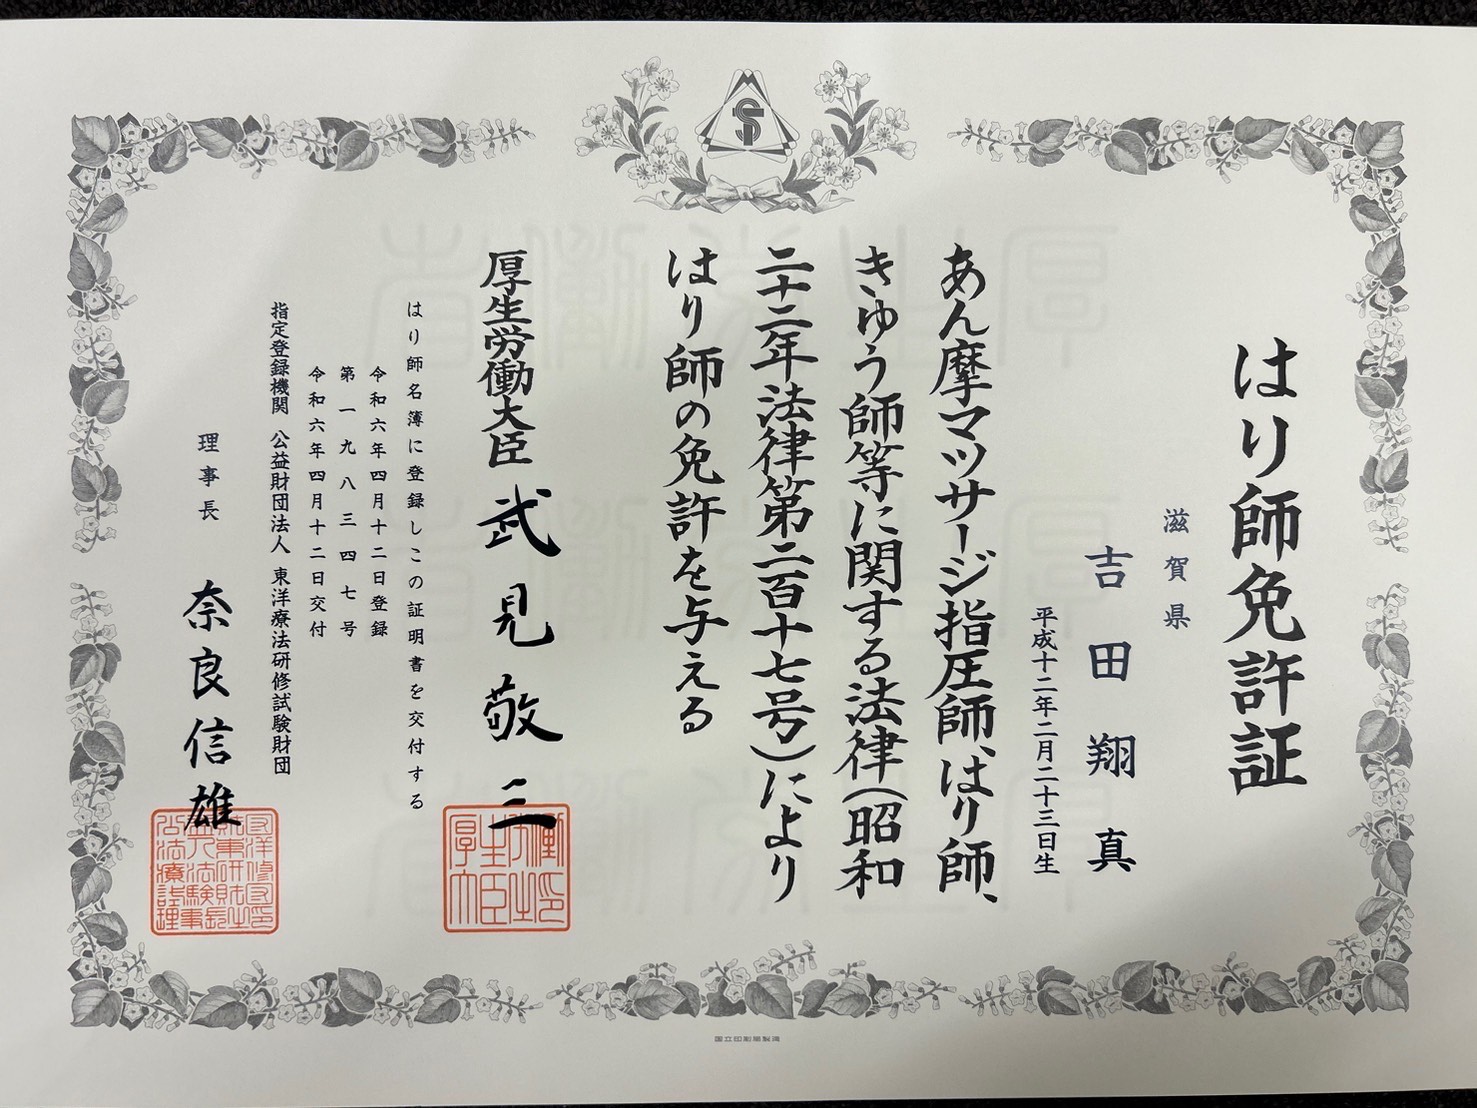 はり師免許証
滋賀県
吉田翔真
平成十二年二月二十三日生
あん摩マツサージ指圧師、はり師、
きゆう師等に関する法律(昭和
二十二年法律第二百十七号)により
はり師の免許を与える
厚生労働大臣 武見敬三
はり師名簿に登録しこの証明書を交付する
令和六年四月十二日登録
第一九八三四七号
令和六年四月十二日交付
指定登録機関 公益財団法人 東洋療法研修試験財団
理事長 奈良信雄
国立印刷局製造